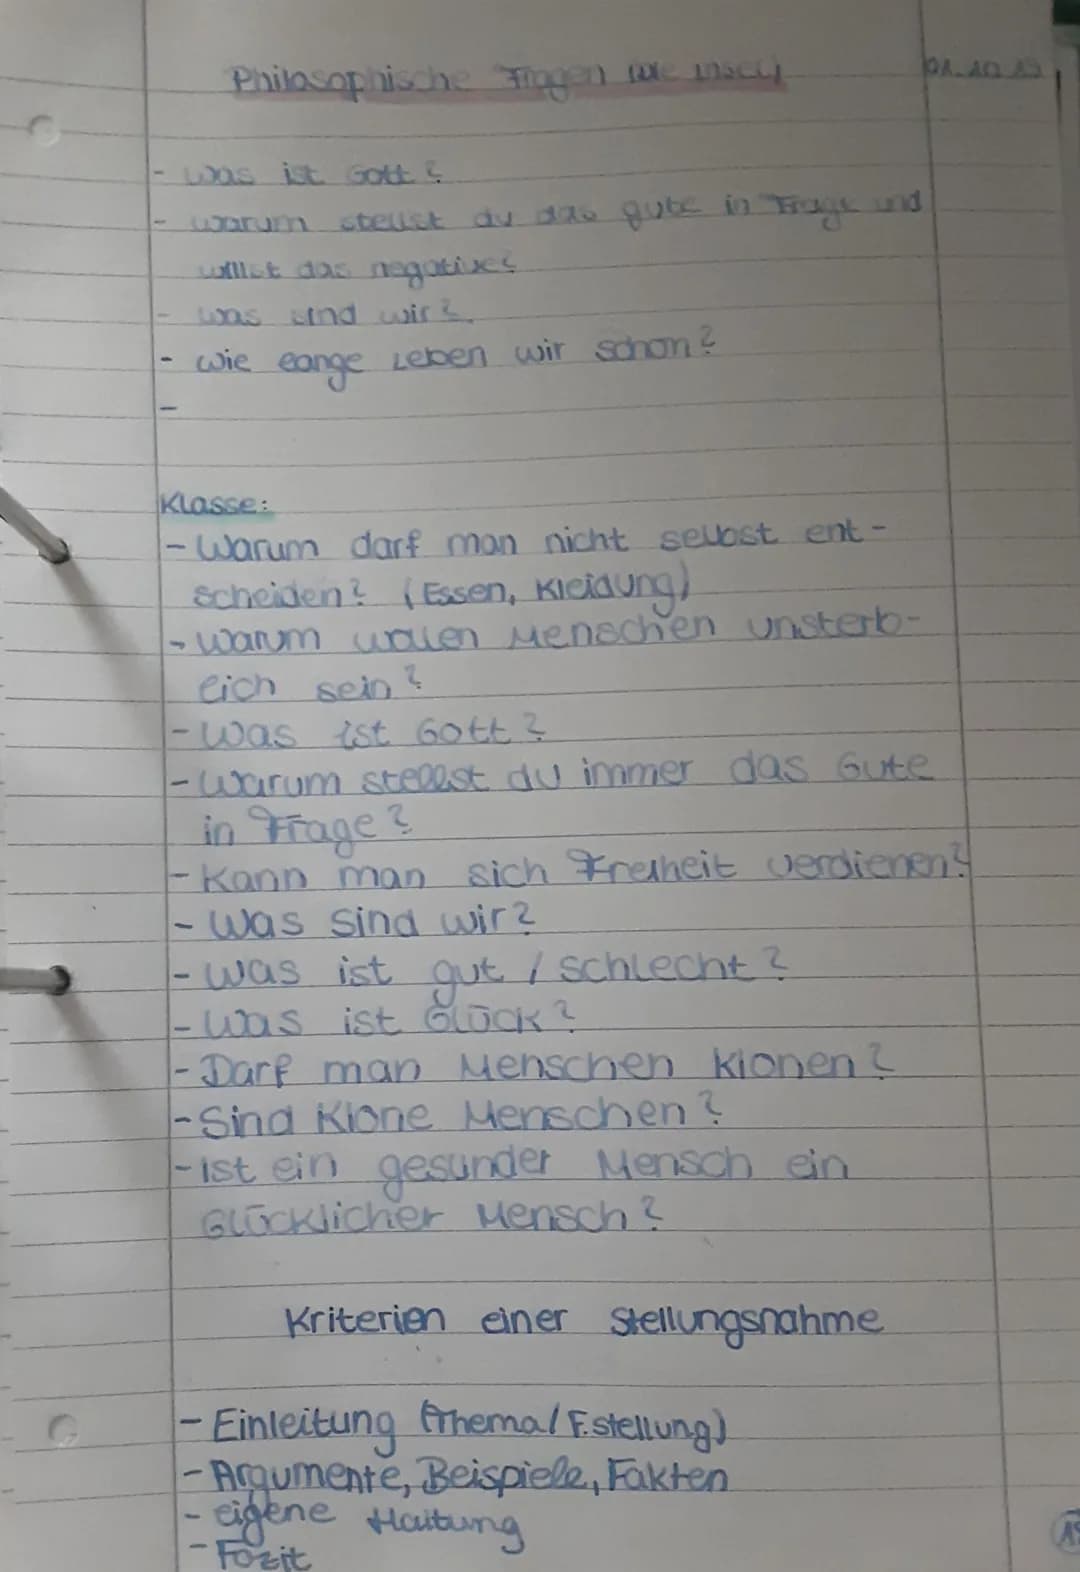 Philosophische Fragen
01.10.19
- Was ist Gott?
- warum stellst du das gute in Frage und
willst das negative?
- was sind wir?
- Wie lange Leben wir schon?
-
Klasse:
- Warum darf man nicht selbst ent-
scheiden? (Essen, Kleidung)
- Warum wollen Menschen unsterb-
lich sein?
- Was ist Gott?
- Warum stellst du immer das Gute
in Frage?
- Kann man sich Freiheit verdienen?
- Was sind wir?
- Was ist gut / schlecht?
- Was ist Glück?
- Darf man Menschen klonen?
- Sind Klone Menschen?
- ist ein gesunder Mensch ein
Glücklicher Mensch?
Kriterien einer Stellungsnahme
- Einleitung (Thema/F.stellung)
- Argumente, Beispiele, Fakten
- eigene Haltung
- Fozit